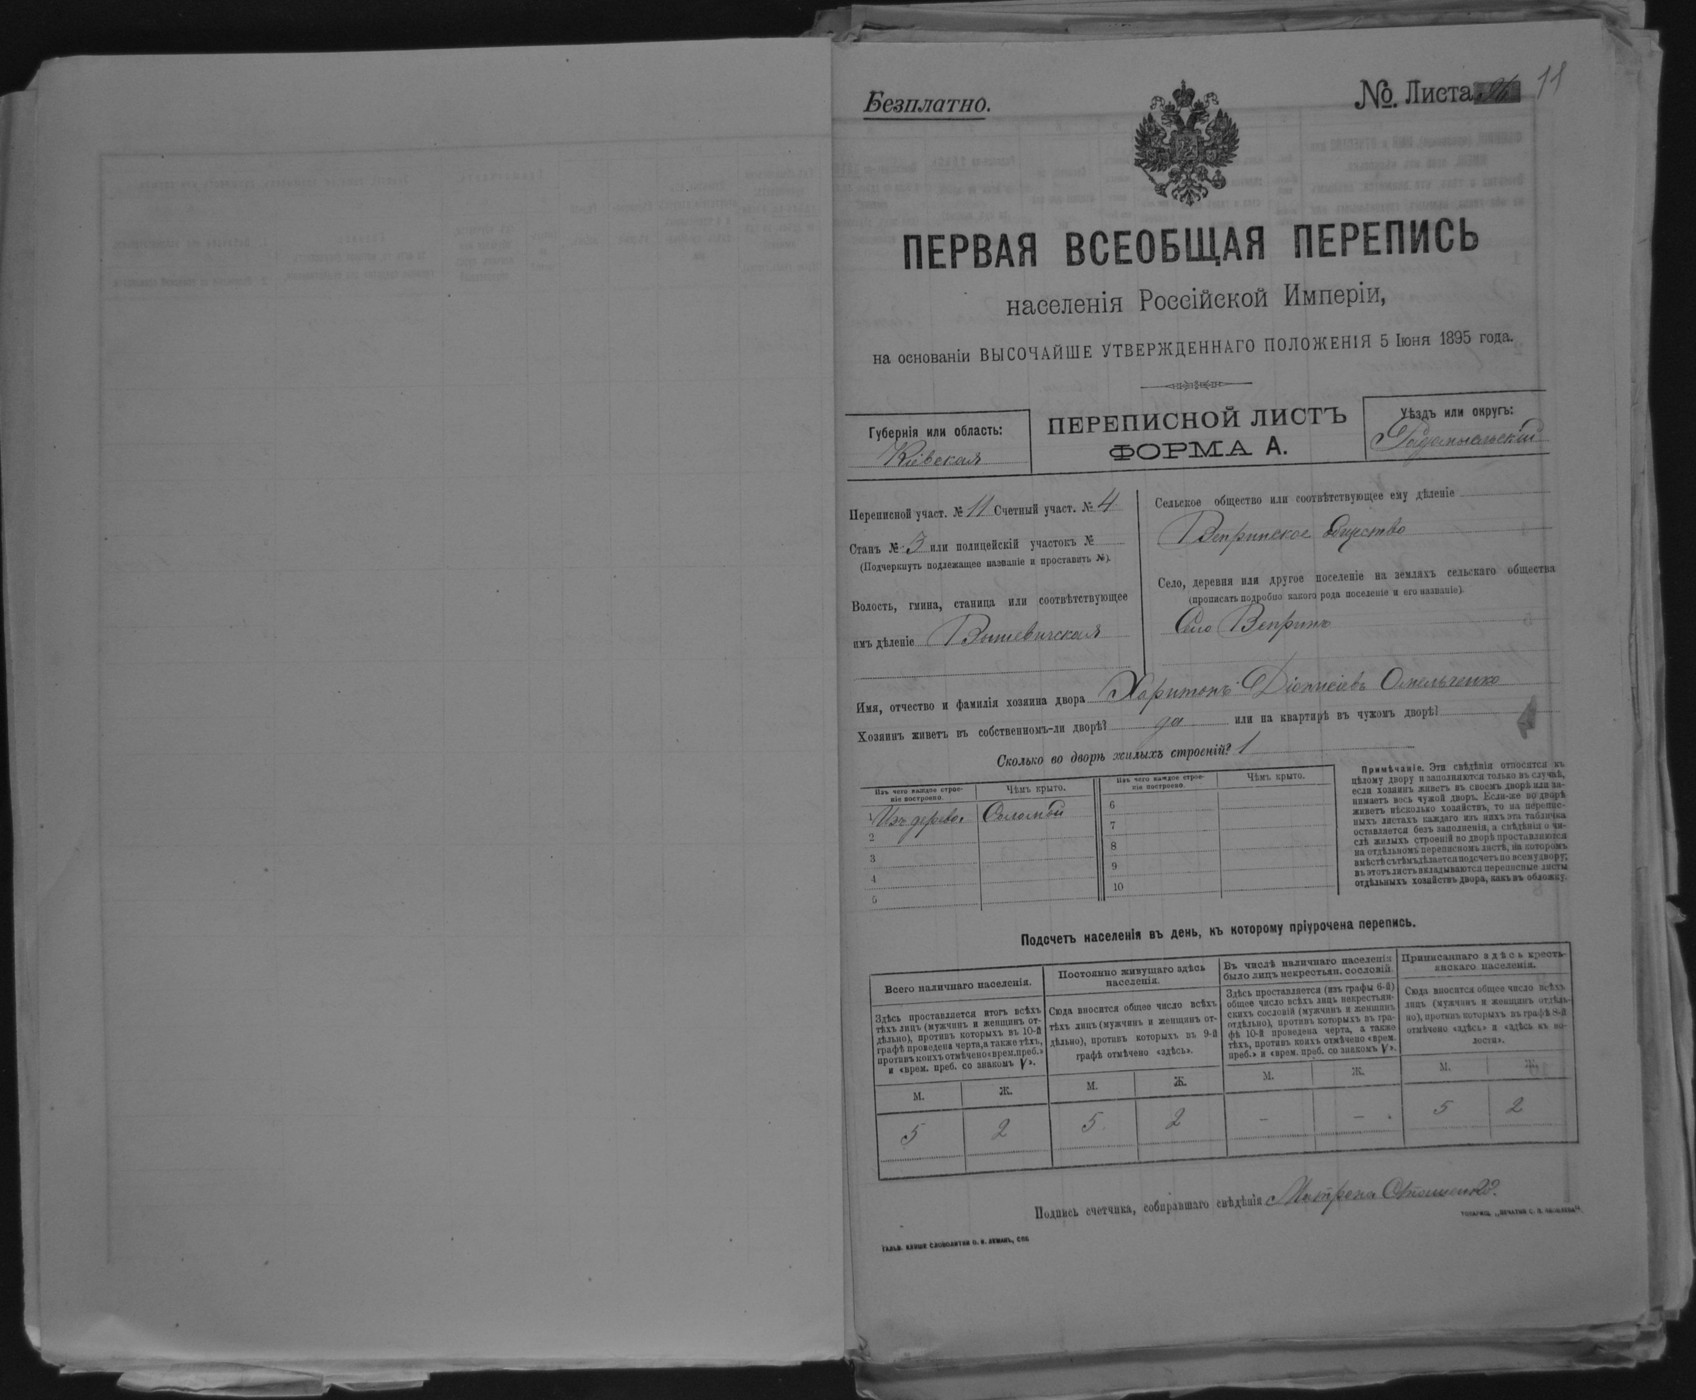 Безплатно.
№ Листа 11
ПЕРВАЯ ВСЕОБЩАЯ ПЕРЕПИСЬ
населенія Россійской Имперіи,
на основаніи ВЫСОЧАЙШЕ УТВЕРЖДЕННАГО ПОЛОЖЕНІЯ 5 Іюня 1895 года.
Губернія или область:
Кіевская
ПЕРЕПИСНОЙ ЛИСТЪ
ФОРМА А.
Уѣздъ или округъ:
Радомысльскій
Переписной участ. № 11 Счетный участ. № 4
Станъ № 3 или полицейскій участокъ №
(Подчеркнуть подлежащее названіе и проставить №).
Волость, гмина, станица или соотвѣтствующее
имъ дѣленіе Вышевичская
Сельское общество или соотвѣтствующее ему дѣленіе
Вепринское общество
Село, деревня или другое поселеніе на земляхъ сельскаго общества
(прописать подробно какого рода поселеніе и его названіе).
Село Вепринъ
Имя, отчество и фамилія хозяина двора Харитонъ Діонисіевъ Омельченко
Хозяинъ живетъ въ собственномъ-ли дворѣ? да или на квартирѣ въ чужомъ дворѣ?
Сколько во дворѣ жилыхъ строеній? 1
Изъ чего каждое строе-
ніе построено.
Чѣмъ крыто.
1 Изъ дерева Соломой
2
3
4
5
Изъ чего каждое строе-
ніе построено.
Чѣмъ крыто.
6
7
8
9
10
Примѣчаніе. Эти свѣдѣнія относятся къ
цѣлому двору и заполняются только въ случаѣ,
если хозяинъ живетъ въ своемъ дворѣ или за-
нимаетъ весь чужой дворъ. Если-же во дворѣ
живетъ нѣсколько хозяйствъ, то на перепис-
ныхъ листахъ каждаго изъ нихъ эта табличка
оставляется безъ заполненія, а свѣдѣнія о чи-
слѣ жилыхъ строеній во дворѣ проставляются
на отдѣльномъ переписномъ листѣ, на которомъ
вмѣстѣ съ тѣмъ дѣлается подсчетъ по всему двору;
въ этотъ листъ вкладываются переписные листы
отдѣльныхъ хозяйствъ двора, какъ въ обложку.
Подсчетъ населенія въ день, къ которому пріурочена перепись.
Всего наличнаго населенія.
Здѣсь проставляется итогъ всѣхъ
тѣхъ лицъ (мужчинъ и женщинъ от-
дѣльно), противъ которыхъ въ 10-й
графѣ проведена черта, а также тѣхъ,
противъ коихъ отмѣчено «врем. преб.»
и «врем. преб. со знакомъ V».
М. Ж.
5 2
Постоянно живущаго здѣсь
населенія.
Сюда вносится общее число всѣхъ
тѣхъ лицъ (мужчинъ и женщинъ от-
дѣльно), противъ которыхъ въ 9-й
графѣ отмѣчено «здѣсь».
М. Ж.
5 2
Въ числѣ наличнаго населенія
было лицъ некрестьян. сословій.
Здѣсь проставляется (изъ графы 6-й)
общее число всѣхъ лицъ некрестьян-
скихъ сословій (мужчинъ и женщинъ
отдѣльно), противъ которыхъ въ гра-
фѣ 10-й проведена черта, а также
тѣхъ, противъ коихъ отмѣчено «врем.
преб.» и «врем. преб. со знакомъ V».
М. Ж.
- -
Приписаннаго здѣсь кресть-
янскаго населенія.
Сюда вносится общее число всѣхъ
лицъ (мужчинъ и женщинъ отдѣль-
но), противъ которыхъ въ графѣ 8-й
отмѣчено «здѣсь» и «здѣсь къ во-
лости».
М. Ж.
5 2
Подпись счетчика, собиравшаго свѣдѣнія